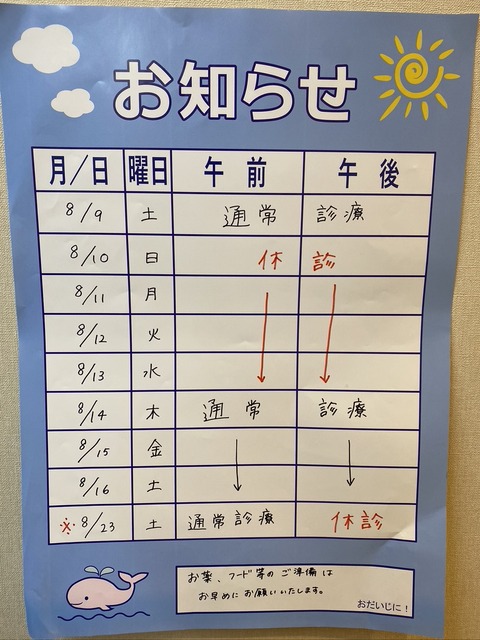 お知らせ
月/日 曜日 午前 午後
8/9 土 通常 診療
8/10 日 休 診
8/11 月
8/12 火
8/13 水
8/14 木 通常 診療
8/15 金
8/16 土
※8/23 土 通常診療 休診
お薬、フード等のご準備は
お早めにお願いいたします。
おだいじに！